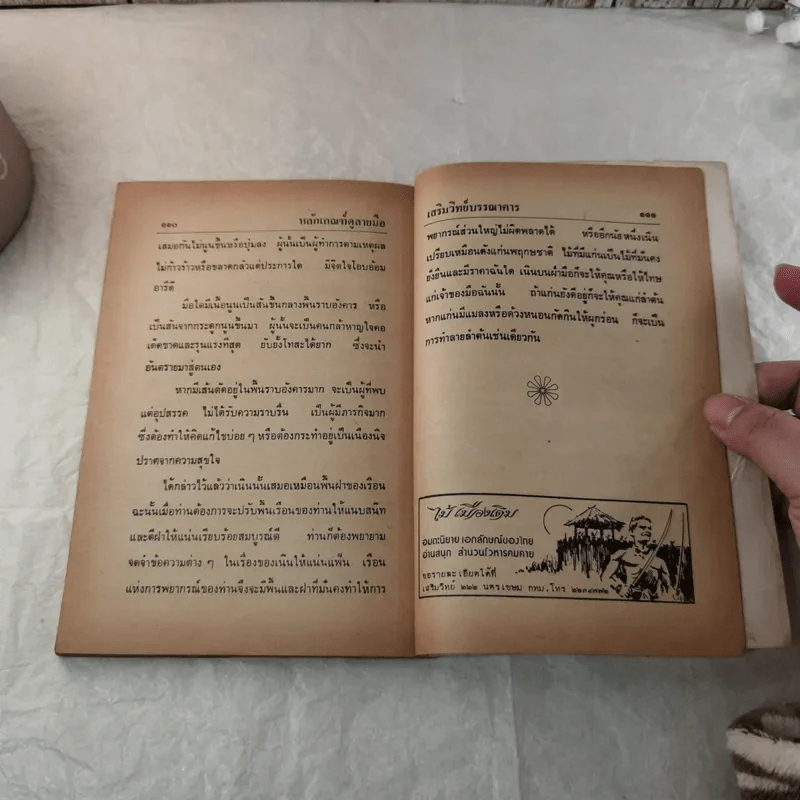 ๑๑๐ หลักเกณฑ์ดูลายมือ
เสมอกันไม่นูนขึ้นหรือบุ๋มลง ผู้นั้นเป็นผู้ทำการตามเหตุผล
ไม่ก้าวร้าวหรือขลาดกลัวแต่ประการใด มีจิตใจโอบอ้อม
อารีดี
มือใดมีเนื้อนูนเป็นสันขึ้นกลางพื้นราบอังคาร หรือ
เป็นสันจากกระดูกนูนขึ้นมา ผู้นั้นจะเป็นคนกล้าหาญใจคอ
เด็ดขาดและรุนแรงที่สุด ยับยั้งโทสะได้ยาก ซึ่งจะนำ
อันตรายมาสู่ตนเอง
หากมีเส้นตัดอยู่ในพื้นราบอังคารมาก จะเป็นผู้ที่พบ
แต่อุปสรรค ไม่ได้รับความราบรื่น เป็นผู้มีภารกิจมาก
ซึ่งต้องทำให้คิดแก้ไขบ่อย ๆ หรือต้องกระทำอยู่เป็นเนืองนิจ
ปราศจากความสุขใจ
ได้กล่าวไว้แล้วว่าเนินนั้นเสมอเหมือนพื้นฝาของเรือน
ฉะนั้นเมื่อท่านต้องการจะปรับพื้นเรือนของท่านให้แนบสนิท
และตีฝาให้แน่นเรียบร้อยสมบูรณ์ดี ท่านก็ต้องพยายาม
จดจำข้อความต่าง ๆ ในเรื่องของเนินให้แน่นแฟ้น เรือน
แห่งการพยากรณ์ของท่านจึงจะมีพื้นและฝาที่มั่นคงทำให้การ
เสริมวิทย์บรรณาคาร ๑๑๑
พยากรณ์ส่วนใหญ่ไม่ผิดพลาดได้ หรืออีกนัยหนึ่งเนิน
เปรียบเหมือนดังแก่นพฤกษชาติ ไม้ที่มีแก่นเป็นไม้ที่มั่นคง
ยั่งยืนและมีราคาฉันใด เนินบนฝ่ามือก็จะให้คุณหรือให้โทษ
แก่เจ้าของมือฉันนั้น ถ้าแก่นยังดีอยู่ก็จะให้คุณแก่ลำต้น
หากแก่นมีแมลงหรือด้วงหนอนกัดกินให้ผุกร่อน ก็จะเป็น
การทำลายลำต้นเช่นเดียวกัน
ไม้ เมืองเดิม
อมตะนิยาย เอกลักษณ์ของไทย
อ่านสนุก สำนวนโวหารคมคาย
ขอรายละเอียดได้ที่
เสริมวิทย์ ๒๒๒ นครเขษม กทม. โทร ๒๒๑๔๗๗๒